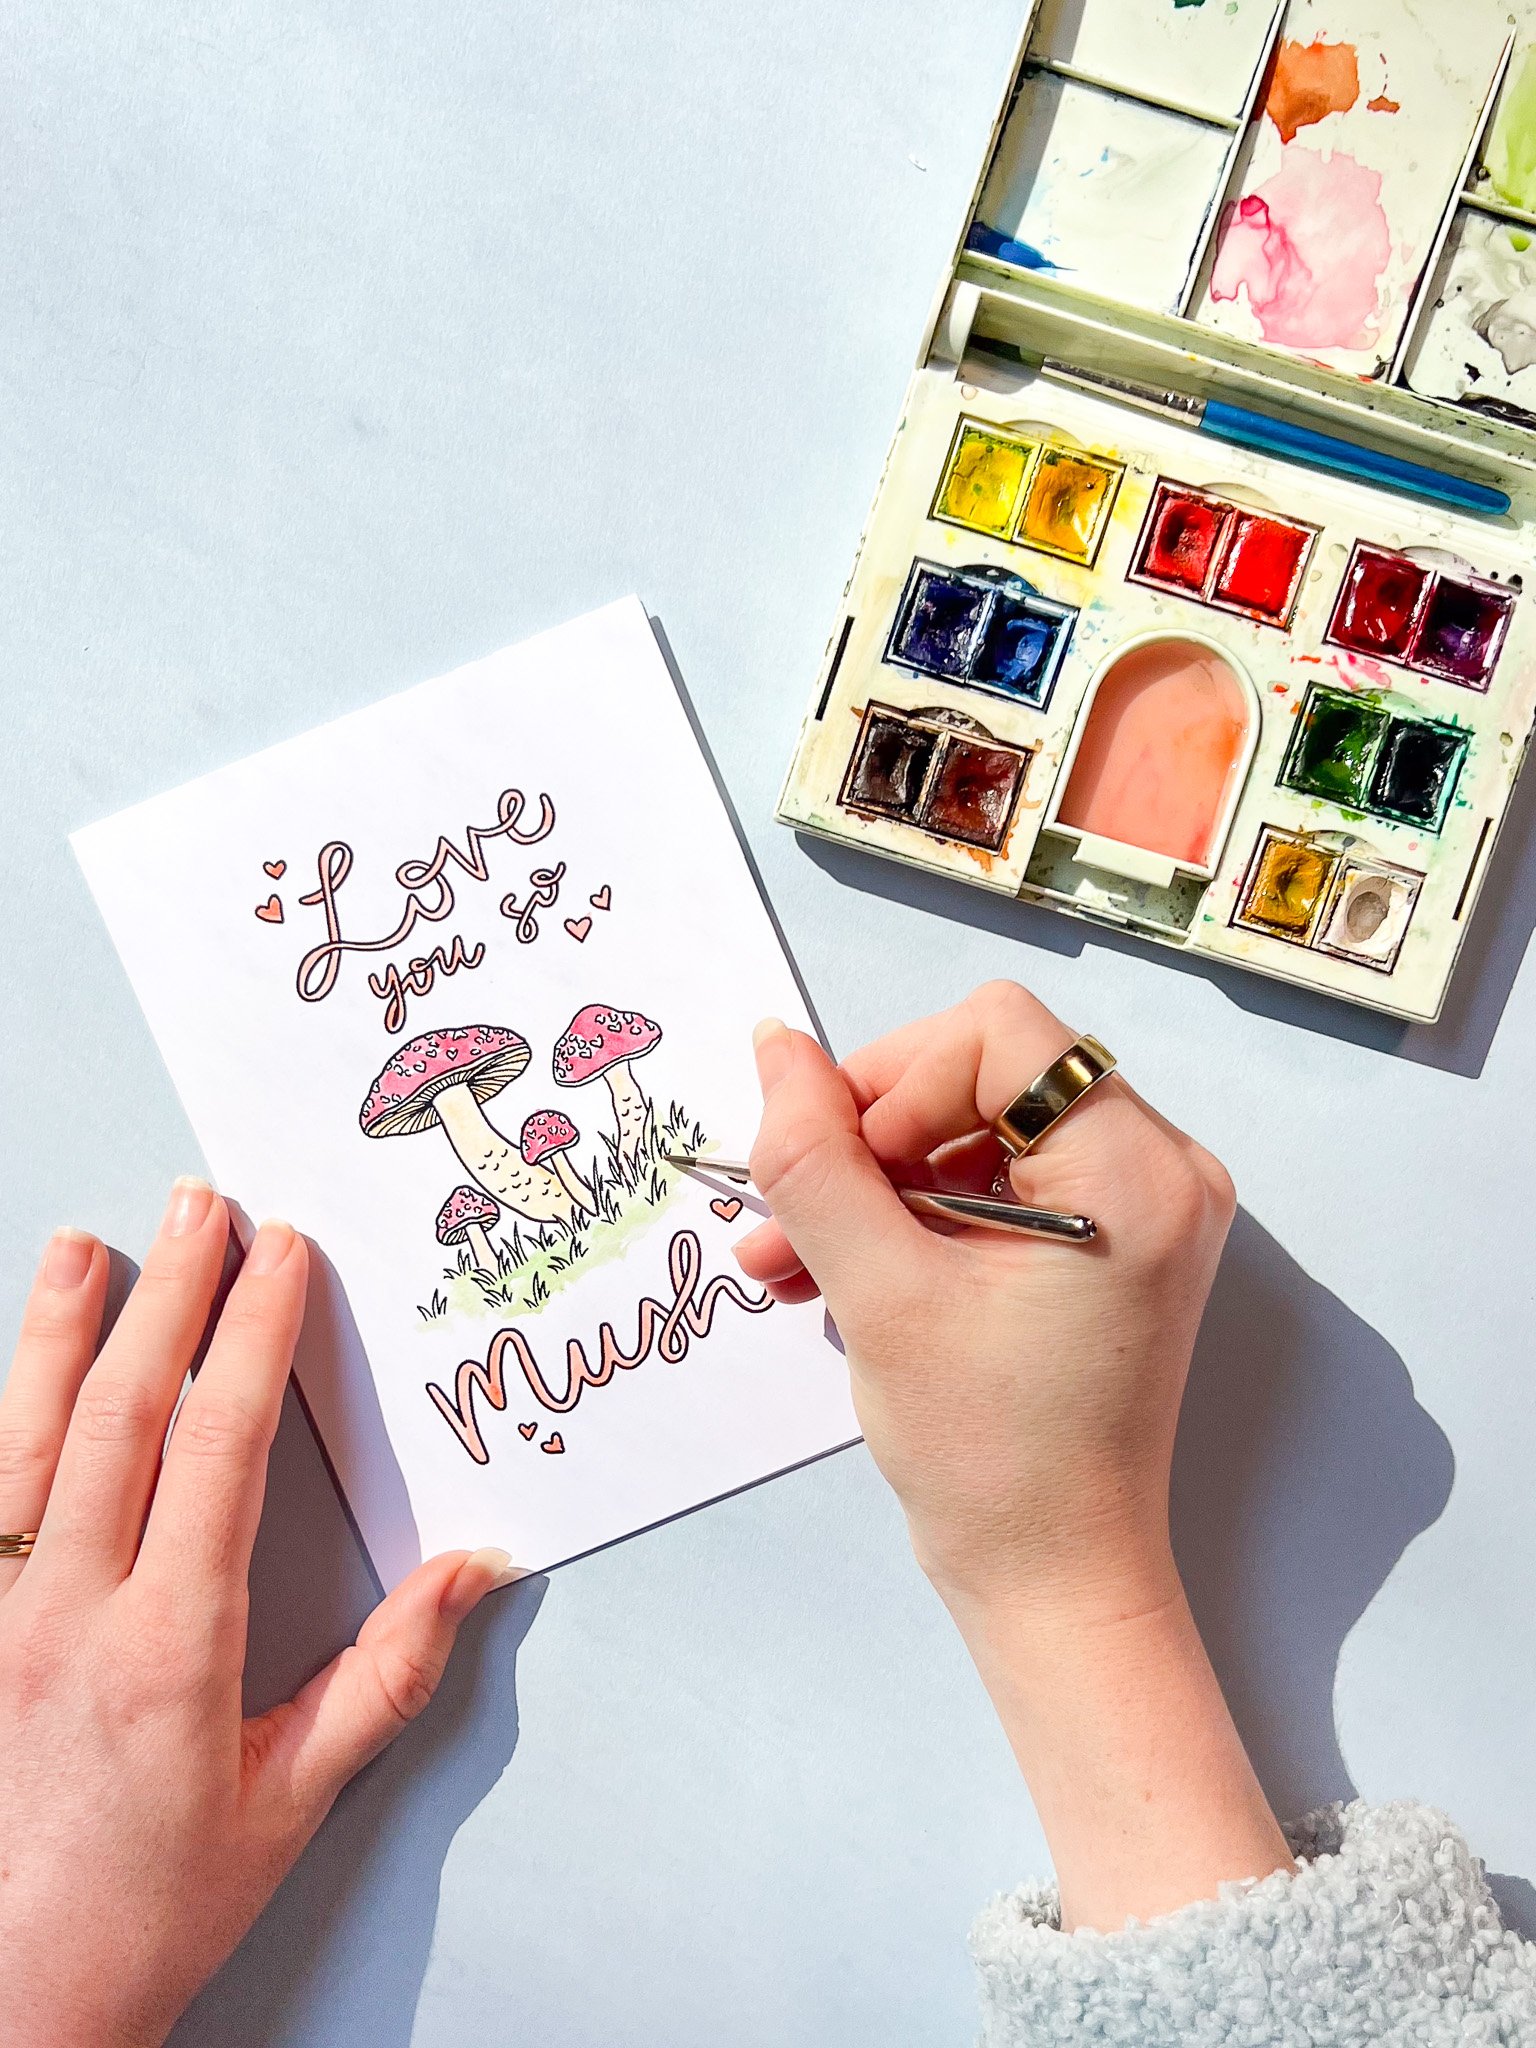 Love
you so
Mush